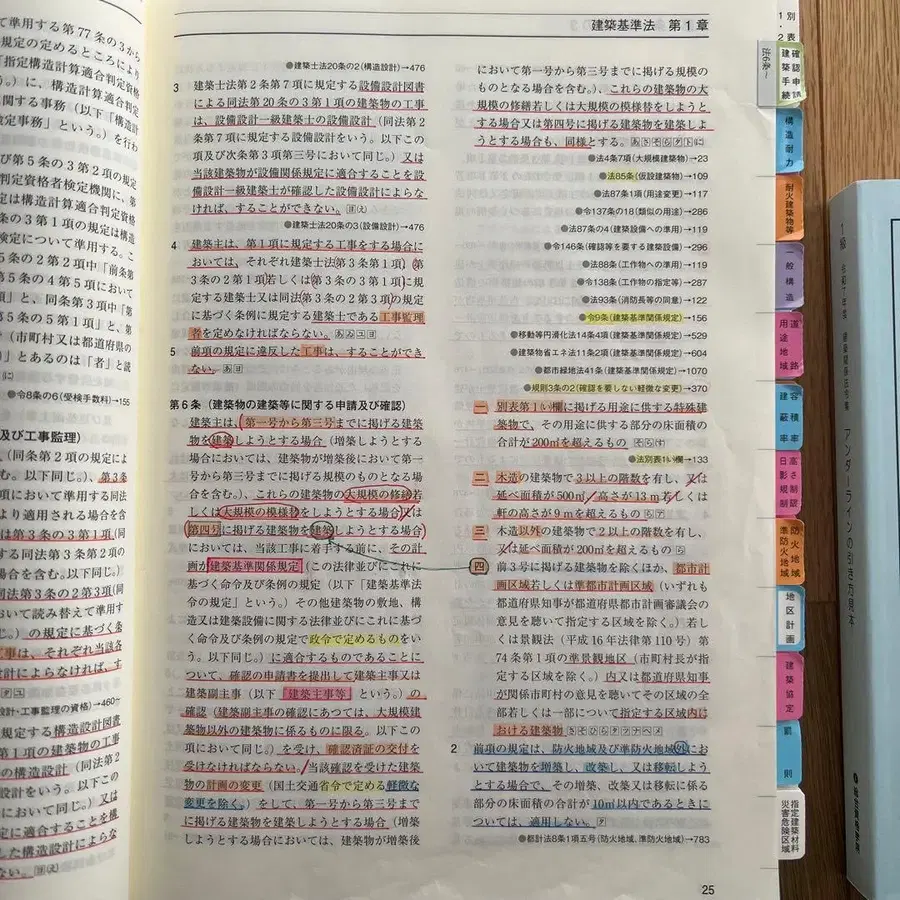 て準用する第77条の3から
規定の定めるところにより
「指定構造計算適合判定資格
に、構造計算適合判定
関する事務(以下「構造計
検定事務」という。)を行わ
び第5条の3第2項の規定
判定資格者検定機関に、第
定は構造計算適合判定資格
条の3第1項の規定は構造
検定について準用する。こ
5条の2第2項中「前条第
5条の4第5項において
項」と、同条第3項中「第
5条の5第1項」と、第
(市町村又は都道府県の
」とあるのは「者」と読
●令8条の6(受検手数料)→155
及び工事監理)
(同条第2項の規定に
む。以下同じ。)、第3条
項において準用する同法
より適用される場合を含
は第3条の3第1項(同
する同法第3条第2項の
場合を含む。以下同じ。)
司法第3条の2第3項(同
おいて読み替えて準用す
じ。)の規定に基づく条
工事は、それぞれ当該各
計によらなければ、す
設計・工事監理の資格)→460
規定する構造設計図書
第1項の建築物の工事
の構造設計(同法第2
設計をいう。以下この
において同じ。)又は
合することを構
した構造設計によらな
建築基準法 第1章
●建築士法20条の2(構造設計)→476
3 建築士法第2条第7項に規定する設備設計図書
による同法第20条の3第1項の建築物の工事
は、設備設計一級建築士の設備設計(同法第2
条第7項に規定する設備設計をいう。以下この
項及び次条第3項第三号において同じ。)又は
当該建築物が設備関係規定に適合することを設
備設計一級建築士が確認した設備設計によらな
ければ、することができない。
●建築士法20条の3(設備設計)→476
4 建築主は、第1項に規定する工事をする場合に
おいては、それぞれ建築士法第3条第1項(第
3条の2第1項若しくは第3条の3第1項に規
定する建築士又は同法第3条の2第3項の規定
に基づく条例に規定する建築士である工事監理
者を定めなければならない。
5 前項の規定に違反した工事は、することができ
ない。
第6条(建築物の建築等に関する申請及び確認)
建築主は、第一号から第三号までに掲げる建築
物を建築しようとする場合(増築しようとする
場合においては、建築物が増築後において第一
号から第三号までに掲げる規模のものとなる場
合を含む。)、これらの建築物の大規模の修繕若
しくは大規模の模様替をしようとする場合又は
第四号に掲げる建築物を建築しようとする場合
においては、当該工事に着手する前に、その計
画が建築基準関係規定(この法律並びにこれに
基づく命令及び条例の規定(以下「建築基準法
令の規定」という。)その他建築物の敷地、構
造又は建築設備に関する法律並びにこれに基づ
く命令及び条例の規定で政令で定めるものをい
う。以下同じ。)に適合するものであることに
ついて、確認の申請書を提出して建築主事又は
建築副主事(以下「建築主事等」という。)の
確認(建築副主事の確認にあつては、大規模建
築物以外の建築物に係るものに限る。以下この
項において同じ。)を受け、確認済証の交付を
受けなければならない。当該確認を受けた建築
物の計画の変更(国土交通省令で定める軽微な
変更を除く。)をして、第一号から第三号まで
に掲げる建築物を建築しようとする場合(増築
しようとする場合においては、建築物が増築後
において第一号から第三号までに掲げる規模の
ものとなる場合を含む。)、これらの建築物の大
規模の修繕若しくは大規模の模様替をしようと
する場合又は第四号に掲げる建築物を建築しよ
うとする場合も、同様とする。
●法4条7項(大規模建築物)→23
●法85条(仮設建築物)→109
●法87条1項(用途変更)→117
●令137条の18(類似の用途)→286
●法87条の4(建築設備への準用)→119
●令146条(確認等を要する建築設備)→296
●法88条(工作物への準用)→119
●令138条(工作物の指定)→287
●法93条(消防長等の同意)→122
●令9条(建築基準関係規定)→156
●移動等円滑化法14条4項(建築基準関係規定)→529
●建築物省エネ法11条2項(建築基準関係規定)→604
●都市緑地法41条(建築基準関係規定)→1070
●規則3条の2(確認を要しない軽微な変更)→370
一 別表第1(い)欄に掲げる用途に供する特殊建
築物で、その用途に供する部分の床面積の
合計が200㎡を超えるもの
●法別表1(い)欄→133
二 木造の建築物で3以上の階数を有し、又は
延べ面積が500㎡、高さが13m若しくは
軒の高さが9mを超えるもの
三 木造以外の建築物で2以上の階数を有し、
又は延べ面積が200㎡を超えるもの
四 前3号に掲げる建築物を除くほか、都市計
画区域若しくは準都市計画区域(いずれも
都道府県知事が都道府県都市計画審議会の
意見を聴いて指定する区域を除く。)若し
くは景観法(平成16年法律第110号)第
74条第1項の準景観地区(市町村長が指
定する区域を除く。)内又は都道府県知事
が関係市町村の意見を聴いてその区域の全
部若しくは一部について指定する区域内に
おける建築物
2 前項の規定は、防火地域及び準防火地域外にお
いて建築物を増築し、改築し、又は移転しよう
とする場合で、その増築、改築又は移転に係る
部分の床面積の合計が10㎡以内であるときに
ついては、適用しない。
●都計法8条1項五号(防火地域、準防火地域)→783
25
別表
1・2
法6条～
確認申請
建築手続
構造耐力
耐火建築物等
一般構造
道路
用途地域
容積率
建蔽率
高さ制限
日影規制
防火地域
準防火地域
地区計画
建築協定
罰則
指定建築材料
災害危険区域
1級
令和7年度 建築関係法令集
アンダーラインの引き方見本
総合資格学院